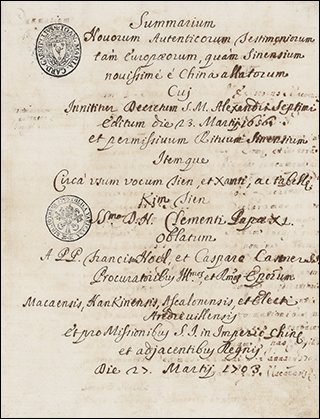 Summarium
Novorum Autenticorum Testimoniorum
tam Europæorum, quam Sinensium
novissime è China allatorum
Cui
Innititur Decretum S. M. Alexandri Septimi
editum die 23. Martij 1656
et permissivum Rituum Sinensium
Itemque
Circa usum vocum Tien, et Xanti, ac tabellæ
Kim Tien
SSmo D. N. Clementi Papæ XI.
oblatum
A PP. Francisco Noel, et Caspare Castner
Procuratoribus Illmos et Rmos Eporum
Macaensis, Nankinensis, Ascalonensis, et Electi
Andrevillensis
et pro Missionibus S. I. in Imperio Chinæ
et adjacentibus Regnis
Die 27. Martij 1703